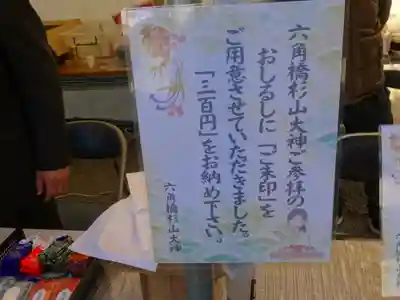 六角橋杉山大神ご参拝の
おしるしに「ご朱印」を
ご用意させていただきました。
「三百円」をお納め下さい。
六角橋杉山大神